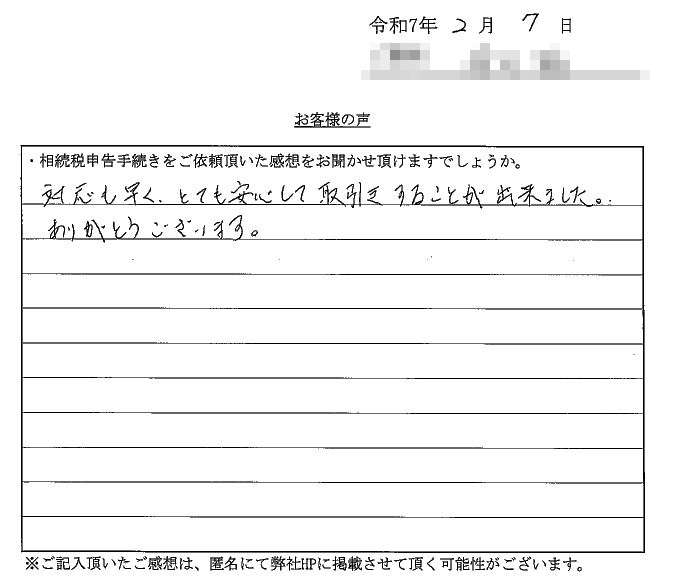 令和7年 2 月 7 日
お客様の声
・相続税申告手続きをご依頼頂いた感想をお聞かせ頂けますでしょうか。
対応も早く、とても安心して取引きすることが出来ました。
ありがとうございます。
※ご記入頂いたご感想は、匿名にて弊社HPに掲載させて頂く可能性がございます。